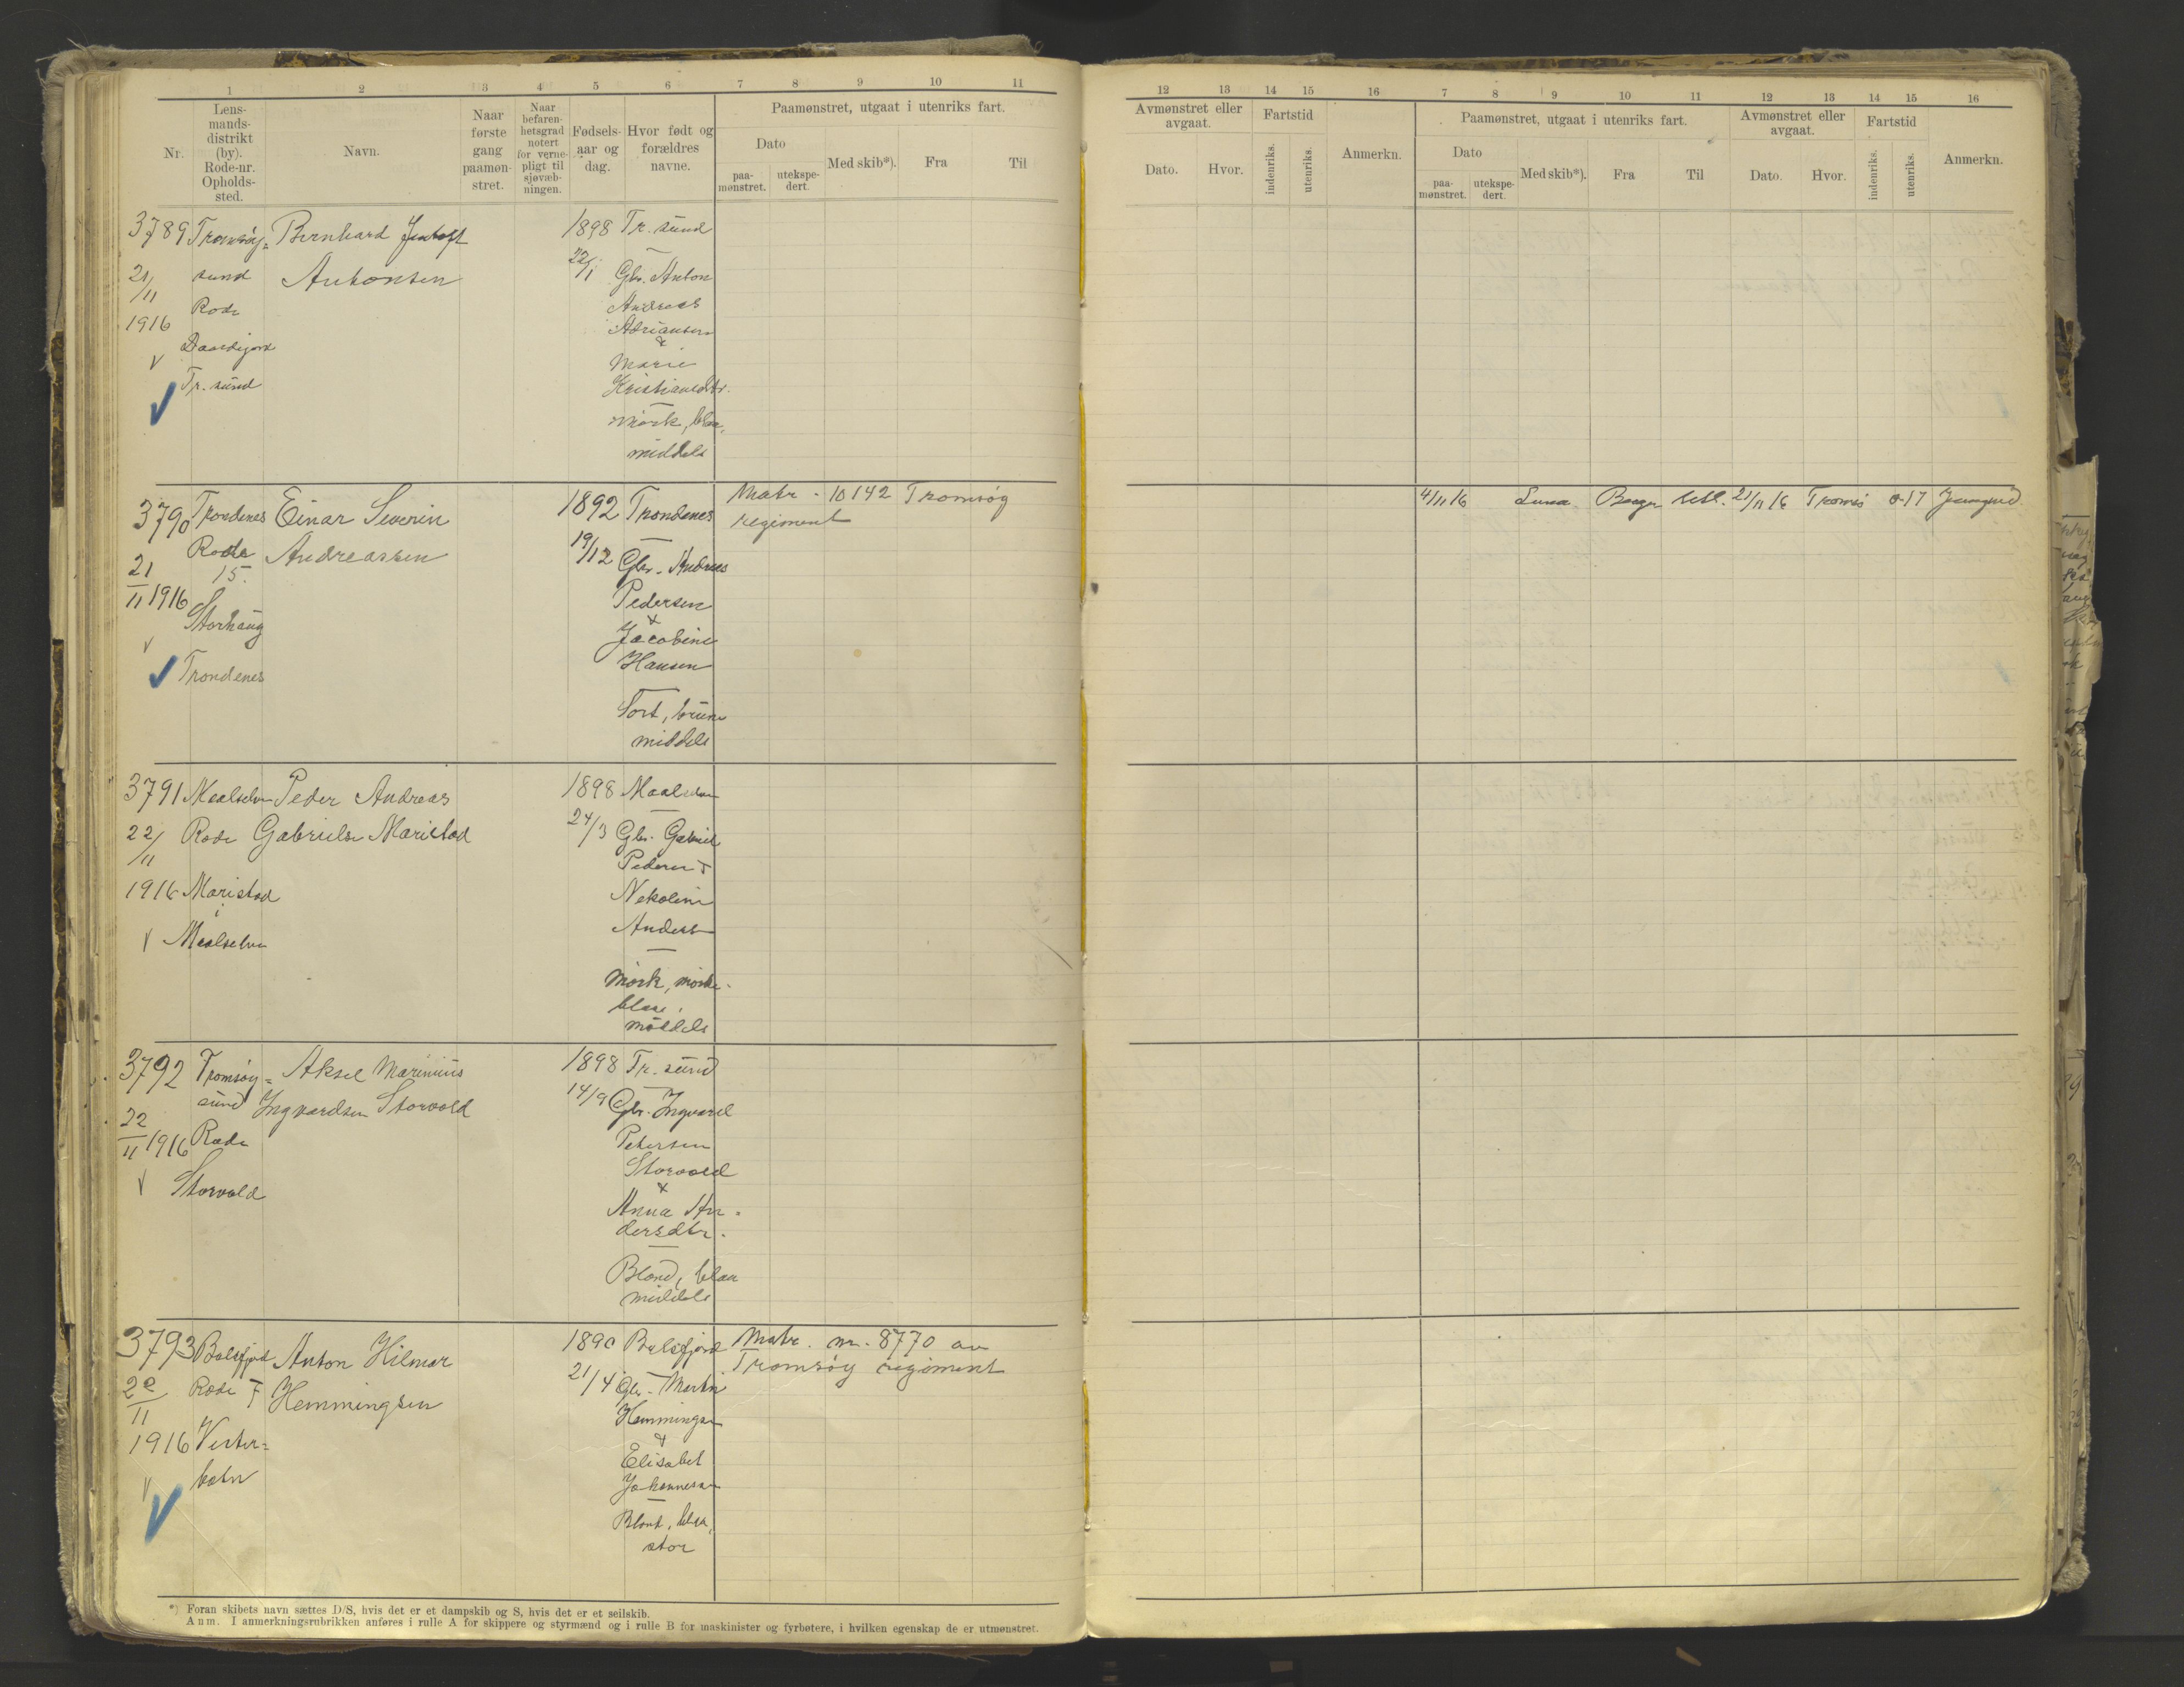 1 2 3 4 5 6 7 8 9 10 11
Nr.
Lens-
mands-
distrikt
(by).
Rode-nr.
Opholds-
sted.
Navn.
Naar
første
gang
paamøn-
stret.
Naar
befaren-
hetsgrad
notert
for verne-
pligt til
sjøvæb-
ningen.
Fødsels-
aar og
dag.
Hvor født og
forældres
navne.
Paamønstret, utgaat i utenriks fart.
Dato
paa-
mønstret.
utekspe-
dert.
Med skib*).
Fra
Til
3789
21/11
1916
Tromsøy-
sund
Rode
Tr. sund
Bernhard Jentoft
Antonsen
1898
22/1
Tr. sund
Gbr. Anton
Andreas
Adriansen
&
Marie
Kristiansdtr.
Mörk, blaa,
middels
3790
21
11 1916
Trondenes
Rode
15.
Storhaug
Trondenes
Einar Severin
Andreassen
1892
19/12
Trondenes
Gbr. Andreas
Pedersen
&
Jacobine
Hansen
Sort, brune
middels
Matr. 10142 Tromsøy
regiment
3791
22/11
1916
Maalselven
Rode
Maristad
i
Maalselven
Peder Andreas
Gabrielsen Maristad
1898
24/3
Maalselven
Gbr. Gabriel
Pedersen &
Nekoline
Anders
Mörk, mörke-
blaa,
middels
3792
22
11 1916
Tromsøy-
sund
Rode
Storvold
Aksel Marinius
Ingvardsen Storvold
1898
14/9
Tr. sund
Gbr. Ingvard
Petersen
Storvold
&
Anna An-
dersdtr.
Blond, blaa
middels
3793
22
11
1916
Balsfjord
Rode F
Vester-
botn
Anton Hilmar
Hemmingsen
1890
21/4
Balsfjord
Gbr. Martin
Hemmingsen
&
Elisabet
Johannesen
Blond, blaa,
stor
Matr. nr. 8770 av
Tromsøy regiment
*) Foran skibets navn sættes D/S, hvis det er et dampskib og S, hvis det er et seilskib.
Anm. I anmerkningsrubrikken anføres i rulle A for skippere og styrmænd og i rulle B for maskinister og fyrbøtere, i hvilken egenskap de er utmønstret.
12 13 14 15 16 7 8 9 10 11 12 13 14 15 16
Avmønstret eller
avgaat.
Dato.
Hvor.
Fartstid
indenriks.
utenriks.
Anmerkn.
Paamønstret, utgaat i utenriks fart.
Dato
paa-
mønstret.
utekspe-
dert.
Med skib*).
Fra
Til
Avmønstret eller
avgaat.
Dato.
Hvor.
Fartstid
indenriks.
utenriks.
Anmerkn.
4/11 16 Luna Bergen 21/11 16 Tromsö 0-17 Jungmd.